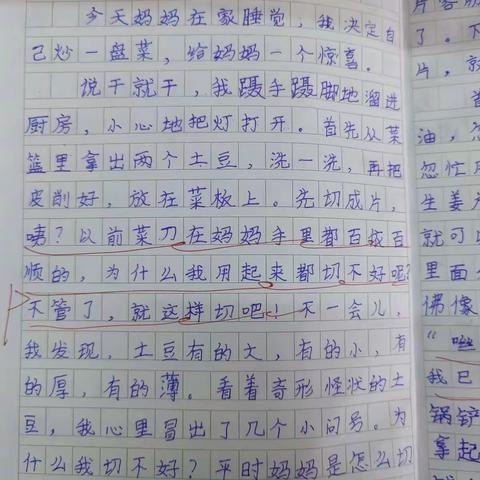 今天妈妈在家睡觉，我决定自
己炒一盘菜，给妈妈一个惊喜。
说干就干，我蹑手蹑脚地溜进
厨房，小心地把灯打开。首先从菜
篮里拿出两个土豆，洗一洗，再把
皮削好，放在菜板上。先切成片，
咦？以前菜刀在妈妈手里都百依百
顺的，为什么我用起来都切不好呢？
不管了，就这样切吧！不一会儿，
我发现，土豆有的大，有的小，有
的厚，有的薄。看着奇形怪状的土
豆，我心里冒出了几个小问号。为
什么我切不好？平时妈妈是怎么切
了。下
片，就
首
油，
忽忙
生姜
就可以
里面
佛像
我已
锅铲
拿起